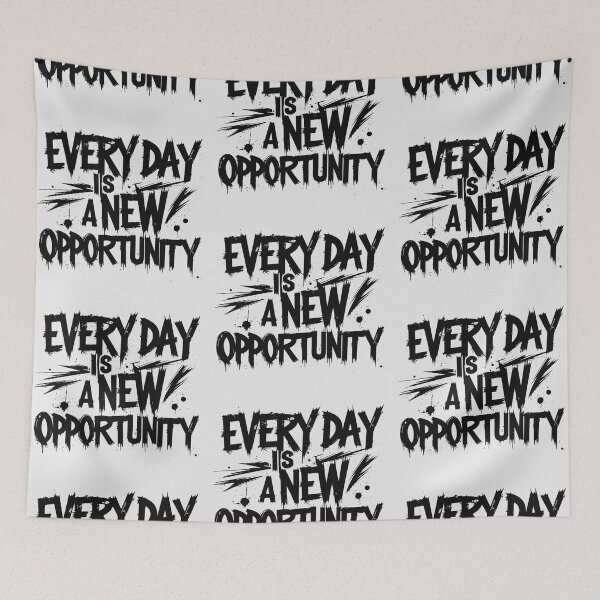 OPPORTUNITY
EVERY DAY
IS
A NEW
OPPORTUNITY
EVERY DAY
IS
A NEW
OPPORTUNITY
EVERY DAY
EVERY DAY
IS
A NEW
OPPORTUNITY
EVERY DAY
IS
A NEW
OPPORTUNITY
EVERY DAY
IS
A NEW
OPPORTUNITY
OPPORTUNITY
EVERY DAY
IS
A NEW
OPPORTUNITY
EVERY DAY
IS
A NEW
OPPORTUNITY
EVERY DAY